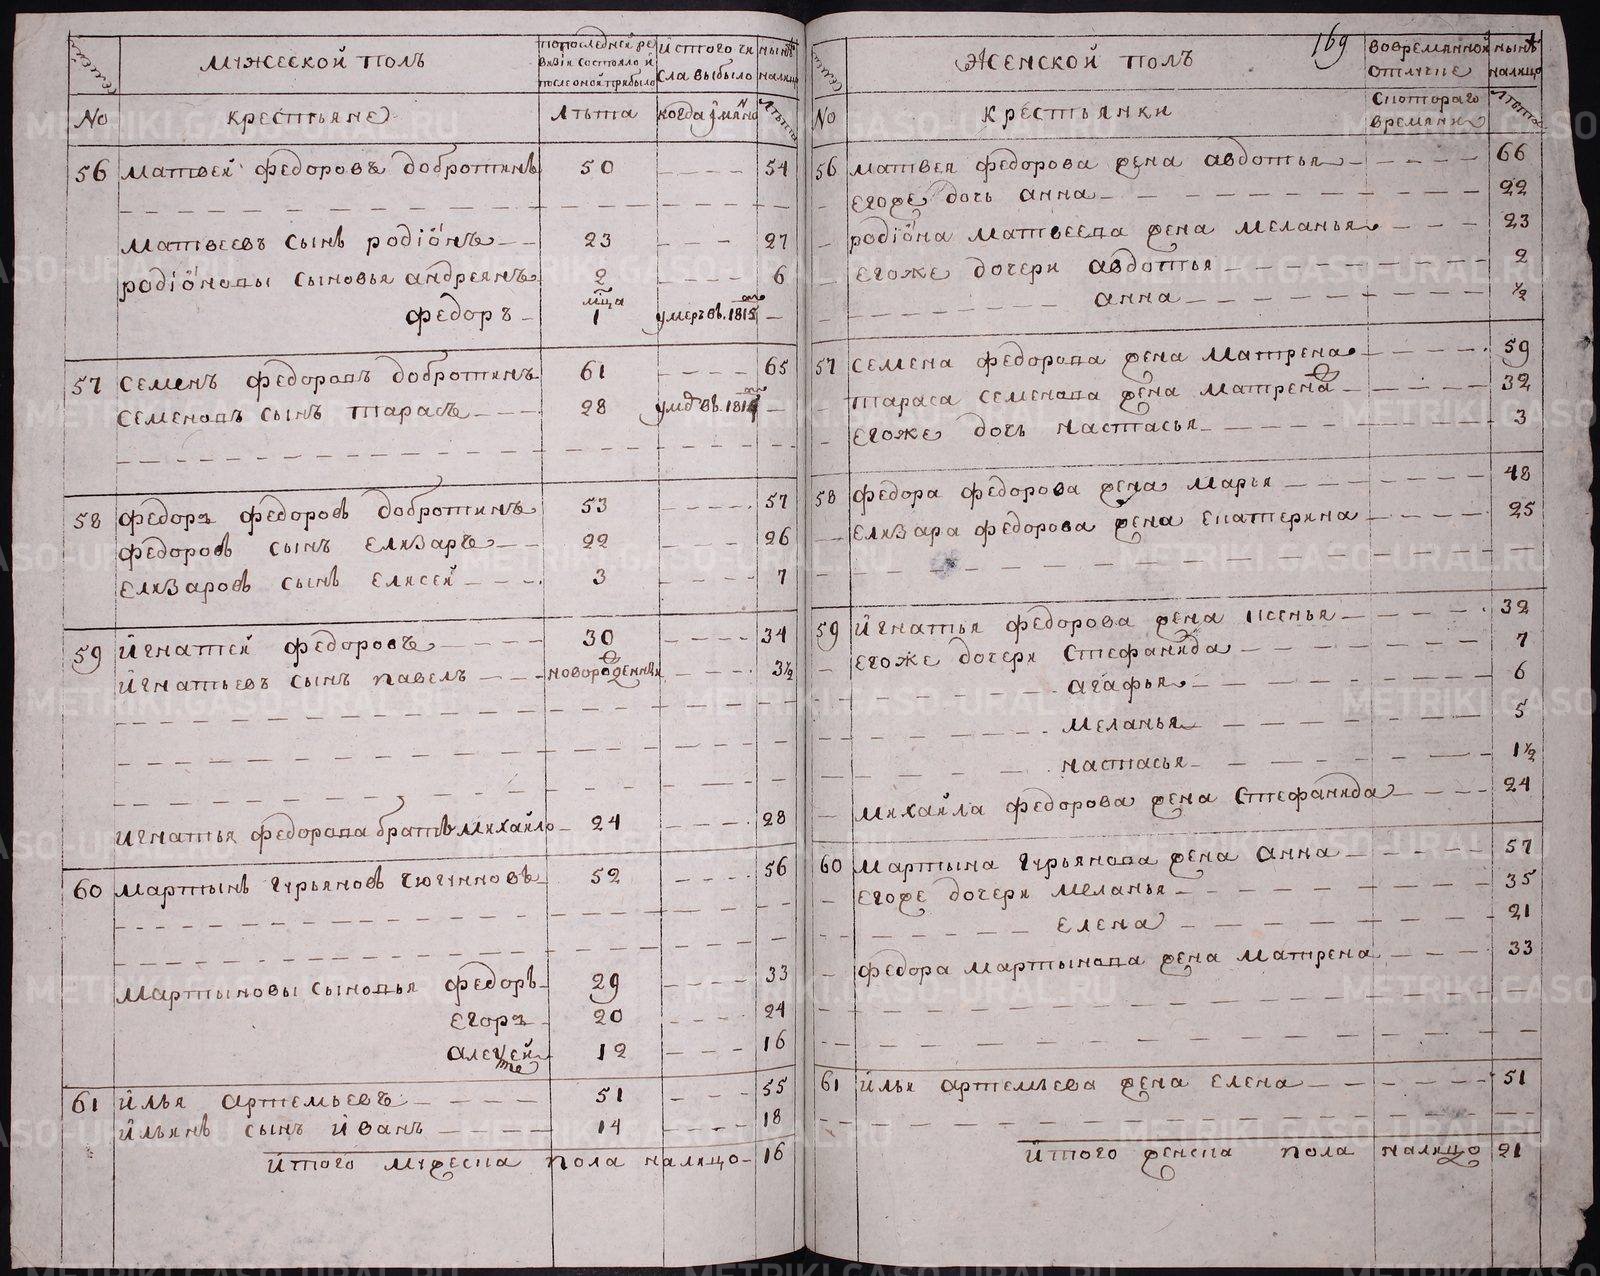 семей
МУЖЕСКОЙ ПОЛЪ
попоследней ре
визіи состояло и
после оной прибыло
Истого чи
сла выбыло
нынѣ
налицо
№
крестьяне
Лѣта
когда ӱмянно
Лѣта
56 Матвей Федоровъ Добротинъ 50 54
Матвеевъ сынъ родіонъ 23 27
родіоновы сыновья андреянъ 2 6
мѣца
Федоръ 1 умеръ въ 1815 —
57 Семенъ Федоровъ Добротинъ 61 65
Семеновъ сынъ тарасъ 28 въ 181 —
58 Федоръ Федоровъ Добротинъ 53 57
Федоровъ сынъ Елизаръ 22 26
Елизаровъ сынъ Елисей 3 7
59 Игнатей Федоровъ 30 34
Игнатьевъ сынъ павелъ новорожденныи 3½
Игнатья Федорова братъ Михайло 24 28
60 Мартынъ Гурьяновъ Чюгунновъ 52 56
Мартыновы сыновья Федоръ 29 33
Егоръ 20 24
алексей 12 16
61 Илья артемьевъ 51 55
Ильинъ сынъ Иванъ 14 18
Итого мужеска пола налицо 16
169
семей
ЖЕНСКОЙ ПОЛЪ
вовремянной
отлучке
нынѣ
налицо
№
крестьянки
Скотораго
времяни
Лѣта
56 Матвея Федорова жена авдотья 66
Егоже дочь анна 22
родіона Матвеева жена Меланья 23
Егоже дочери авдотья 2
анна ½
57 Семена Федорова жена Матрена 59
тараса семенова жена матрена 32
Егоже дочь настасья 3
58 Федора Федорова жена Марья 48
Елизара Федорова жена Екатерина 25
59 Игнатья Федорова жена Ксенья 32
Егоже дочери Стефанида 7
агафья 6
Меланья 5
настасья 1½
Михайла Федорова жена Стефанида 24
60 Мартына Гурьянова жена анна 57
Егоже дочери Меланья 35
Елена 21
Федора Мартынова жена Матрена 33
61 Илья артемьева жена Елена 51
Итого женска пола налицо 21
METRIKI.GASO-URAL.RU